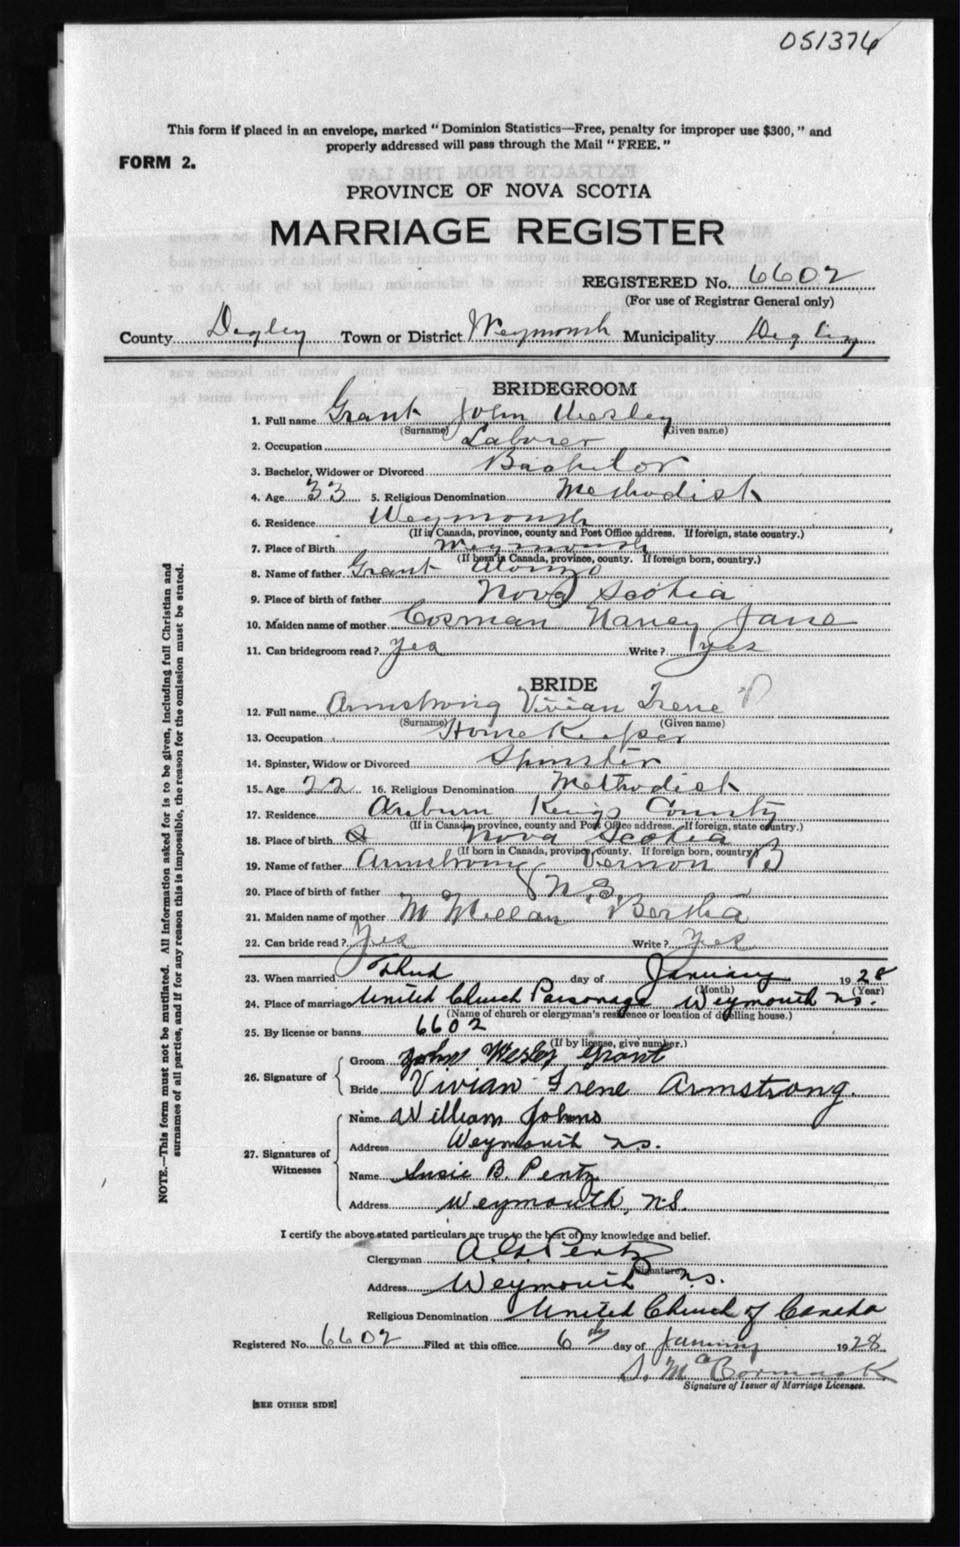 051376
This form if placed in an envelope, marked "Dominion Statistics—Free, penalty for improper use $300," and
properly addressed will pass through the Mail "FREE."
FORM 2.
PROVINCE OF NOVA SCOTIA
MARRIAGE REGISTER
REGISTERED No. 6602
(For use of Registrar General only)
County Digby Town or District Weymouth Municipality Digby
BRIDEGROOM
1. Full name Grant John Wesley
(Surname) (Given name)
2. Occupation Laborer
3. Bachelor, Widower or Divorced Bachelor
4. Age 33 5. Religious Denomination Methodist
6. Residence Weymouth
(If in Canada, province, county and Post Office address. If foreign, state country.)
7. Place of Birth Weymouth
(If born in Canada, province, county. If foreign born, country.)
8. Name of father Grant Alonzo
9. Place of birth of father Nova Scotia
10. Maiden name of mother Cosman Nancy Jane
11. Can bridegroom read? Yes Write? yes
BRIDE
12. Full name Armstrong Vivian Irene
(Surname) (Given name)
13. Occupation Home Keeper
14. Spinster, Widow or Divorced Spinster
15. Age 22 16. Religious Denomination Methodist
17. Residence Kings County
(If in Canada, province, county and Post Office address. If foreign, state country.)
18. Place of birth Nova Scotia
(If born in Canada, province, county. If foreign born, country)
19. Name of father Armstrong Vernon B
20. Place of birth of father N.S.
21. Maiden name of mother McMillan Bertha
22. Can bride read? Yes Write? Yes
23. When married Third day of January 1928
(Month) (Year)
24. Place of marriage United Church Parsonage Weymouth N.S.
(Name of church or clergyman's residence or location of dwelling house.)
25. By license or banns 6602
(If by license, give number.)
26. Signature of
Groom John Wesley Grant
Bride Vivian Irene Armstrong.
27. Signatures of Witnesses
Name William Johns
Address Weymouth N.S.
Name Susie B. Pentz
Address Weymouth, N.S.
I certify the above stated particulars are true to the best of my knowledge and belief.
Clergyman Pentz
(Signature)
Address Weymouth N.S.
Religious Denomination United Church of Canada
Registered No. 6602 Filed at this office 6th day of January 1928
S. McCormack
Signature of Issuer of Marriage Licenses.
[SEE OTHER SIDE]
NOTE.—This form must not be mutilated. All information asked for is to be given, including full Christian and
surnames of all parties, and if for any reason this is impossible, the reason for the omission must be stated.